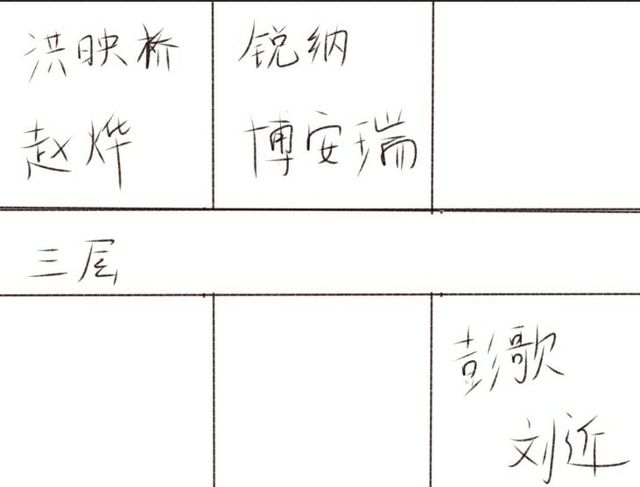 洪映桥 锐纳
赵烨 博安瑞
三层
彭歌
刘近